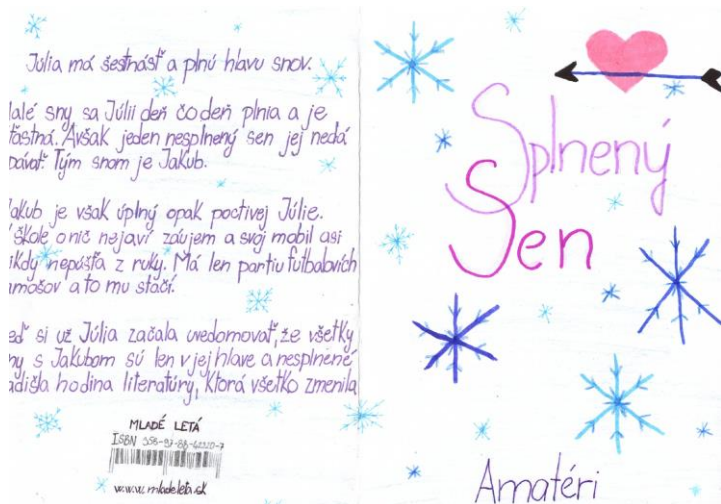 Júlia má šestnásť a plnú hlavu snov.
alé sny sa Júlii deň čo deň plnia a je
ťastná. Avšak jeden nesplnený sen jej nedá
pávať. Tým snom je Jakub.
akub je však úplný opak poctivej Júlie.
škole o nič nejaví záujem a svoj mobil asi
ikdy nepúšťa z ruky. Má len partiu futbalových
amošov a to mu stačí.
eď si už Júlia začala uvedomovať, že všetky
ny s Jakubom sú len v jej hlave a nesplnené
adišla hodina literatúry, ktorá všetko zmenila
MLADÉ LETÁ
ISBN
www.mladeleta.sk
Splnený
Sen
Amatéri